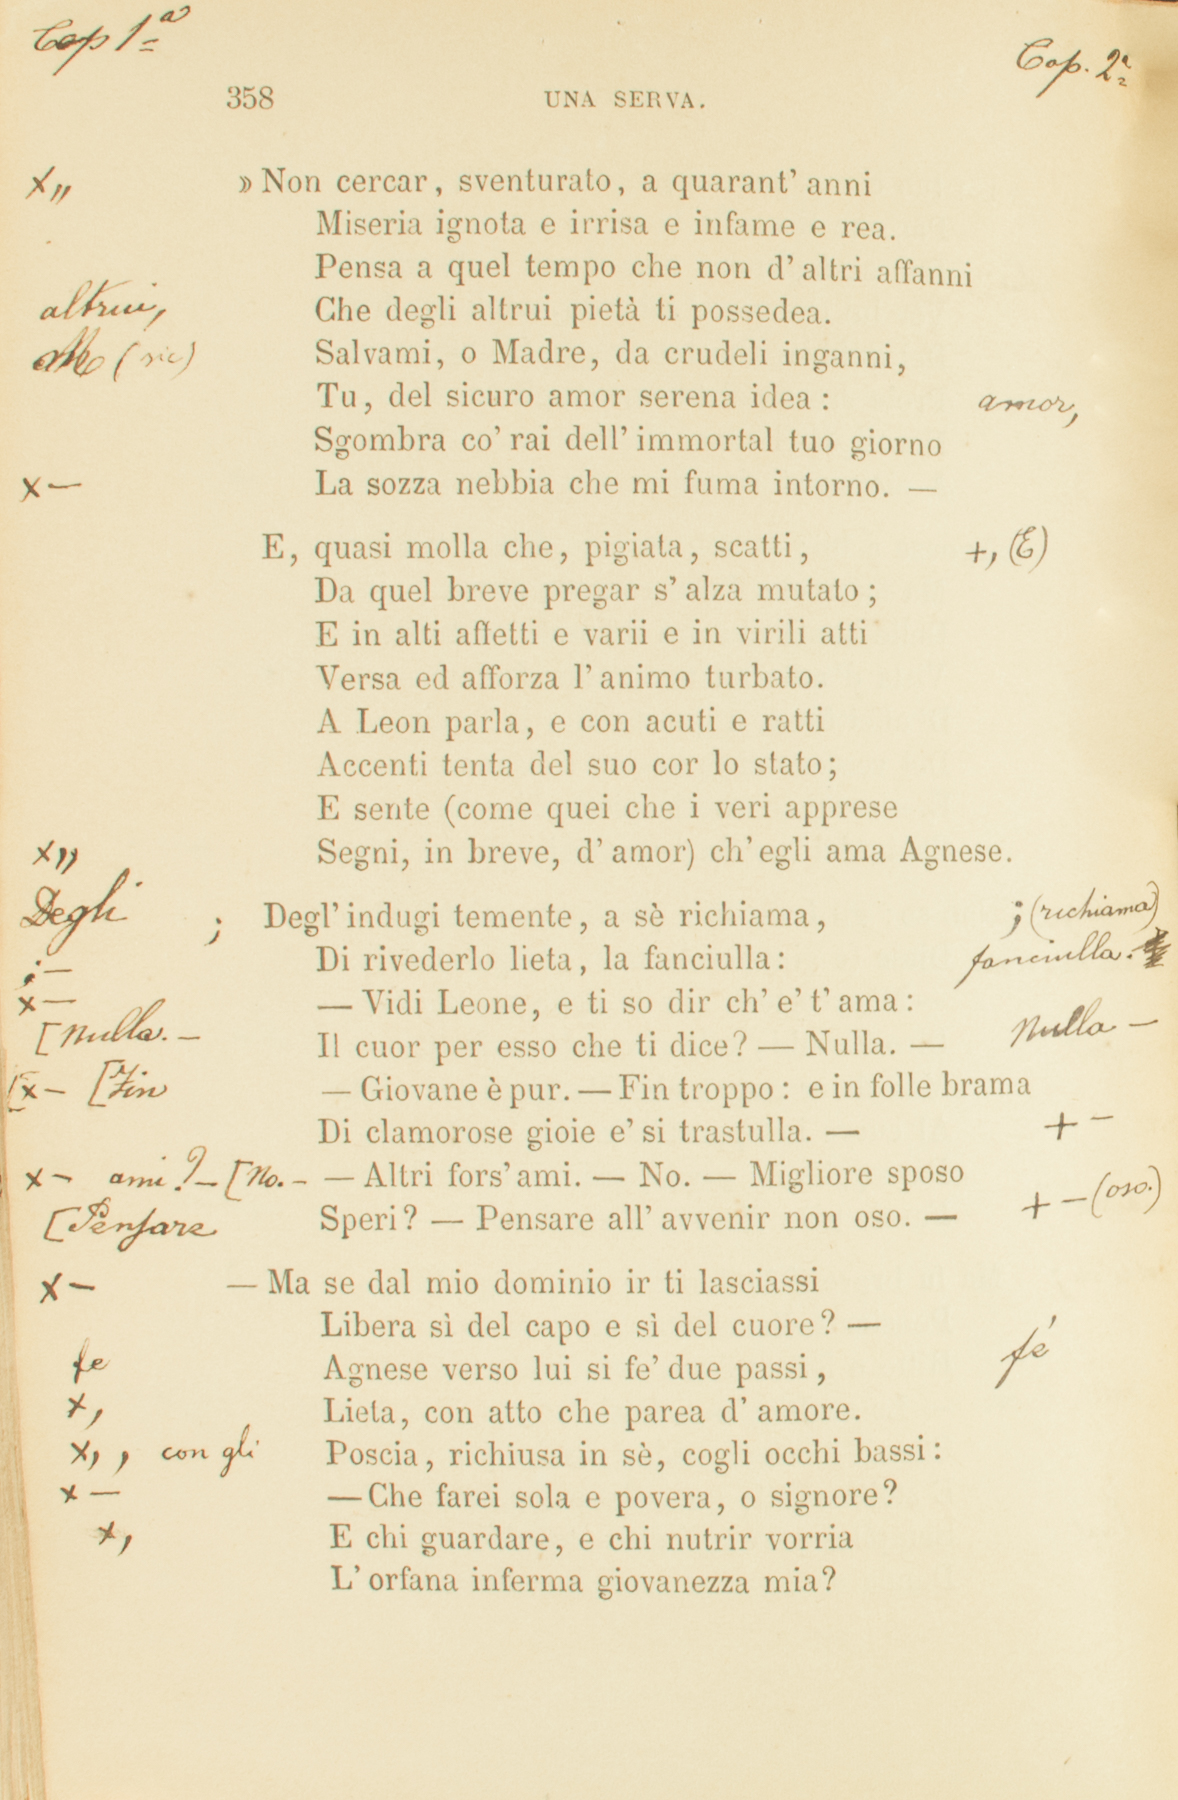 Cop 1ª
Cop. 2ª
358 UNA SERVA.
x„ » Non cercar, sventurato, a quarant' anni
Miseria ignota e irrisa e infame e rea.
Pensa a quel tempo che non d' altri affanni
altrui, Che degli altrui pietà ti possedea.
(sic) Salvami, o Madre, da crudeli inganni,
Tu, del sicuro amor serena idea: amor,
Sgombra co' rai dell' immortal tuo giorno
x — La sozza nebbia che mi fuma intorno. —
E, quasi molla che, pigiata, scatti, +, (E)
Da quel breve pregar s' alza mutato;
E in alti affetti e varii e in virili atti
Versa ed afforza l' animo turbato.
A Leon parla, e con acuti e ratti
Accenti tenta del suo cor lo stato;
E sente (come quei che i veri apprese
x„ Segni, in breve, d' amor) ch' egli ama Agnese.
Degli ; Degl' indugi temente, a sè richiama, ; (richiama)
; — Di rivederlo lieta, la fanciulla: fanciulla.
x — — Vidi Leone, e ti so dir ch' e' t' ama:
[Nulla. — Il cuor per esso che ti dice? — Nulla. — Nulla —
[x — [Fin — Giovane è pur. — Fin troppo: e in folle brama
Di clamorose gioie e' si trastulla. — + —
x — ami? — [No. — — Altri fors' ami. — No. — Migliore sposo
[Pensare Speri? — Pensare all' avvenir non oso. — + — (oso.)
x — — Ma se dal mio dominio ir ti lasciassi
Libera sì del capo e sì del cuore? —
fe Agnese verso lui si fe' due passi, fé
x, Lieta, con atto che parea d' amore.
x, , con gli Poscia, richiusa in sè, cogli occhi bassi:
x — — Che farei sola e povera, o signore?
x, E chi guardare, e chi nutrir vorria
L' orfana inferma giovanezza mia?